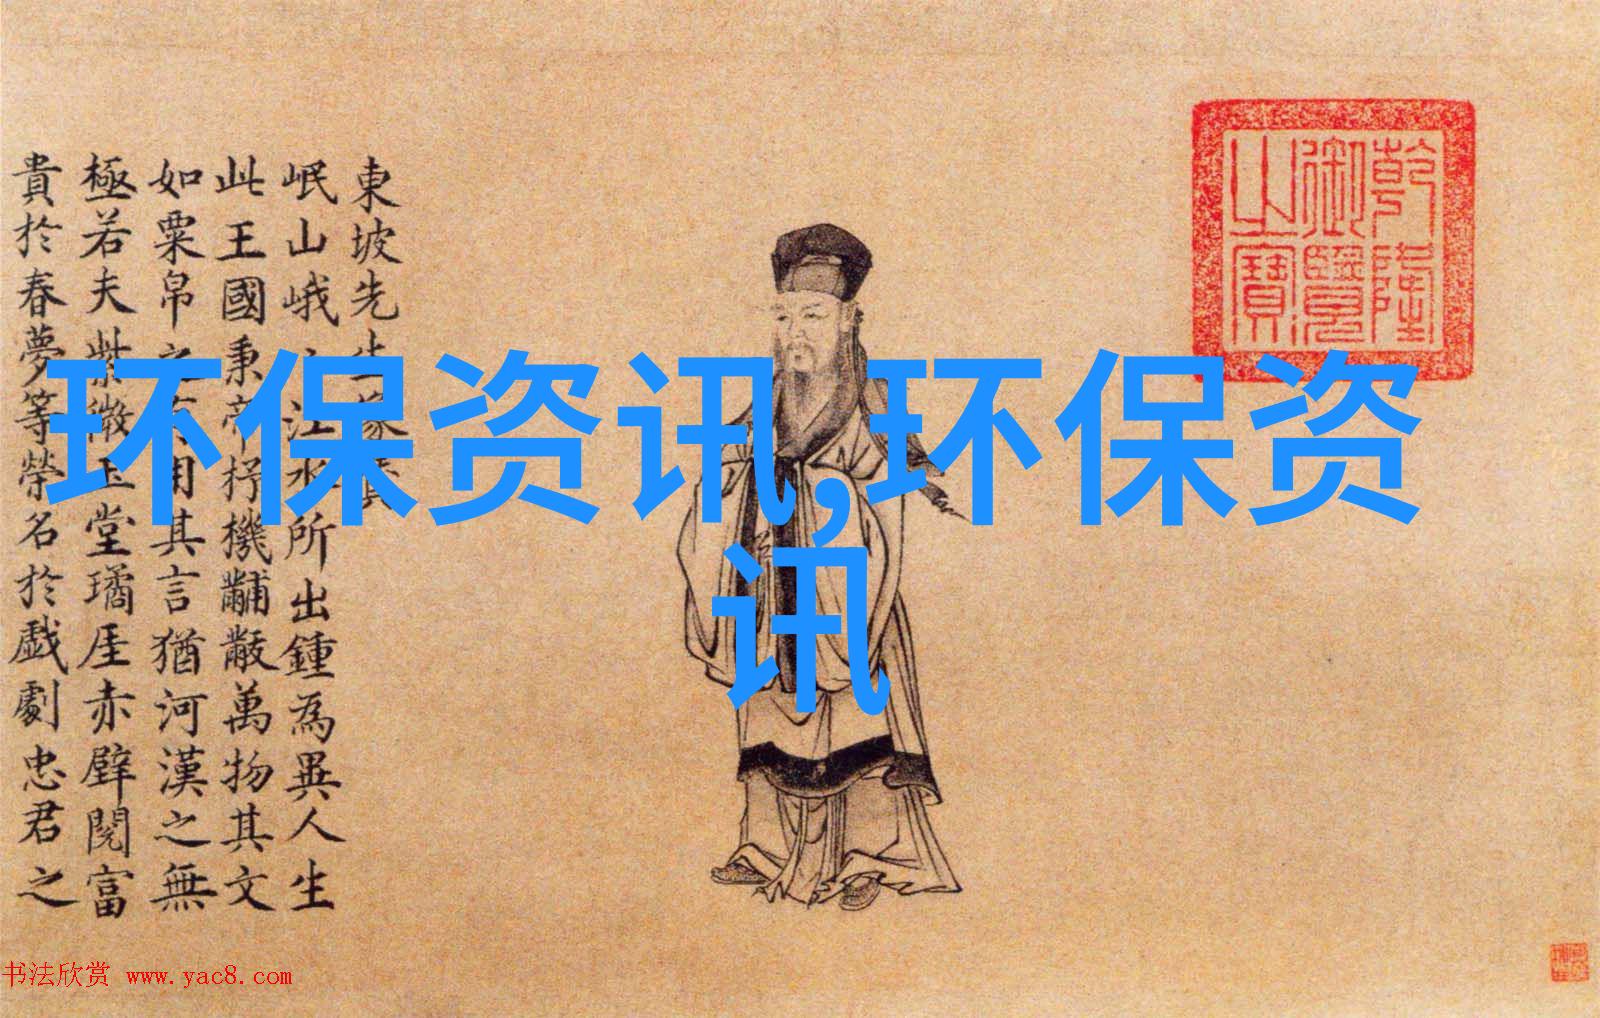 乾隆
御覽
之寶
東坡先生像贊
岷山峨峨江水所出鍾為異人生
此王國秉帝杼機黼黻萬物其文
如粟帛之有用其言猶河漢之無
極若夫紫微玉堂璚厓赤壁閱富
貴於春夢等榮名於戲劇忠君之
环保资讯,环保资
讯
书法欣赏 www.yac8.com